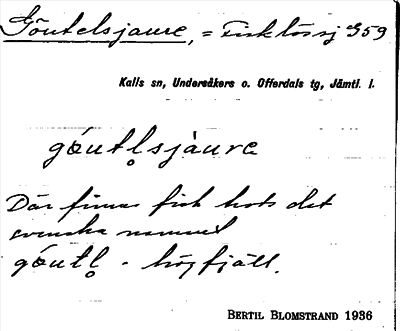 Göutelsjaure, = Fisklössj 359
Kalls sn, Undersåkers o. Offerdals tg, Jämtl. l.
góutl̥sjàure
Där finns fisk trots det
svenska namnet
góutl̥ - högfjäll.
BERTIL BLOMSTRAND 1936